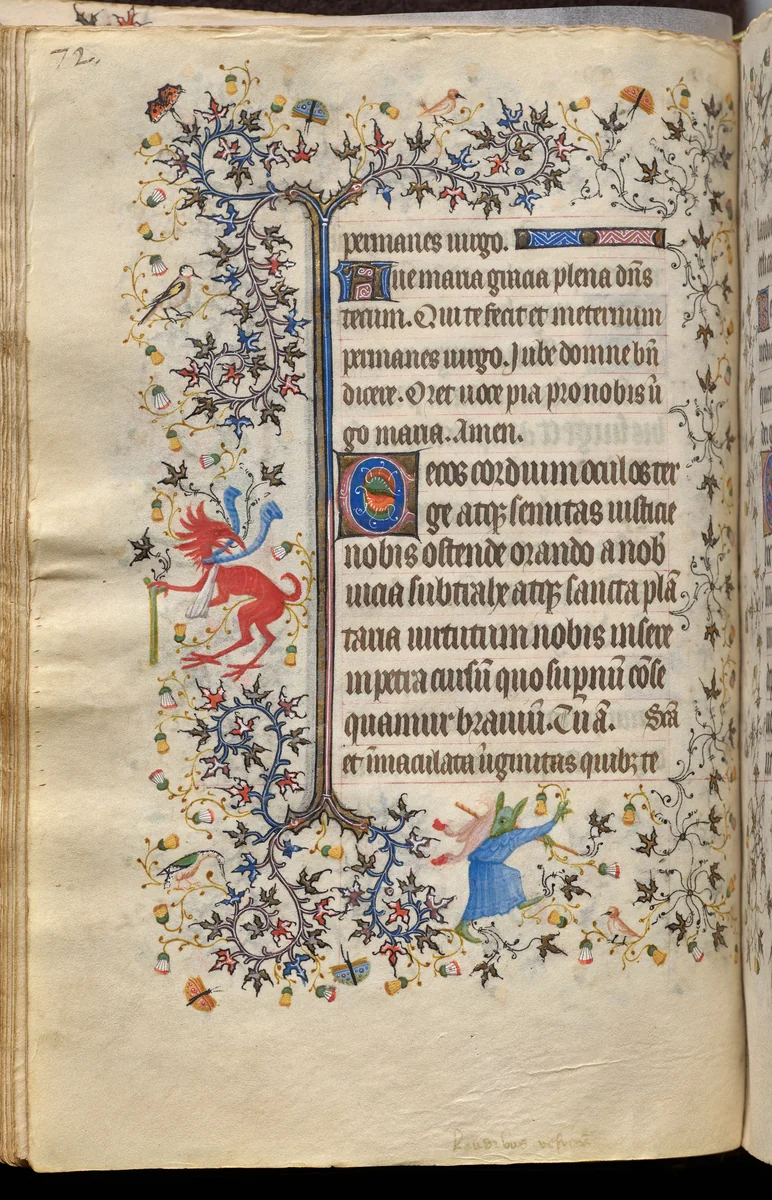 72.
permanes uirgo.
Aue maria gracia plena dn̄s
tecum. Qui te fecit et meternum
permanes uirgo. Iube domne bn̄
dicere. Oret uoce pia pro nobis ū
go maria. Amen.
Cecos cordium oculos ter
ge atq; semitas iusticie
nobis ostende orando a nob̄
uicia subtrahe atq; sancta plā
taria uirtutum nobis insere
impetra cursū quo sup̄nū cōse
quamur brauiū. Tu ā. Scā
et īmaculata ūginitas quibȝ te